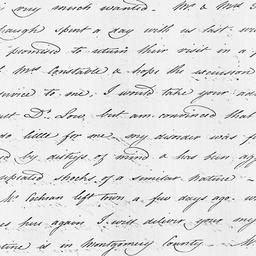 is very much wanted. Mr & Mrs
spent a day with us last
promised to return their visit in a
Mrs Constable & hope the excursion
to me. I would take your
Dr. Love, but am convinced that
do little for me, my disorder was
by distress of mind & has been
repeated shocks of a similar nature
Mr Cochran left town a few days ago.
here again I will deliver your
is in Montgomery County.